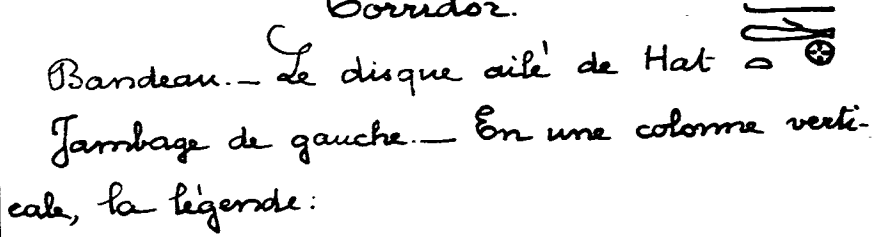 Corridor.
Bandeau. _ Le disque ailé de Hat
Jambage de gauche. _ En une colonne verti-
cale, la légende: